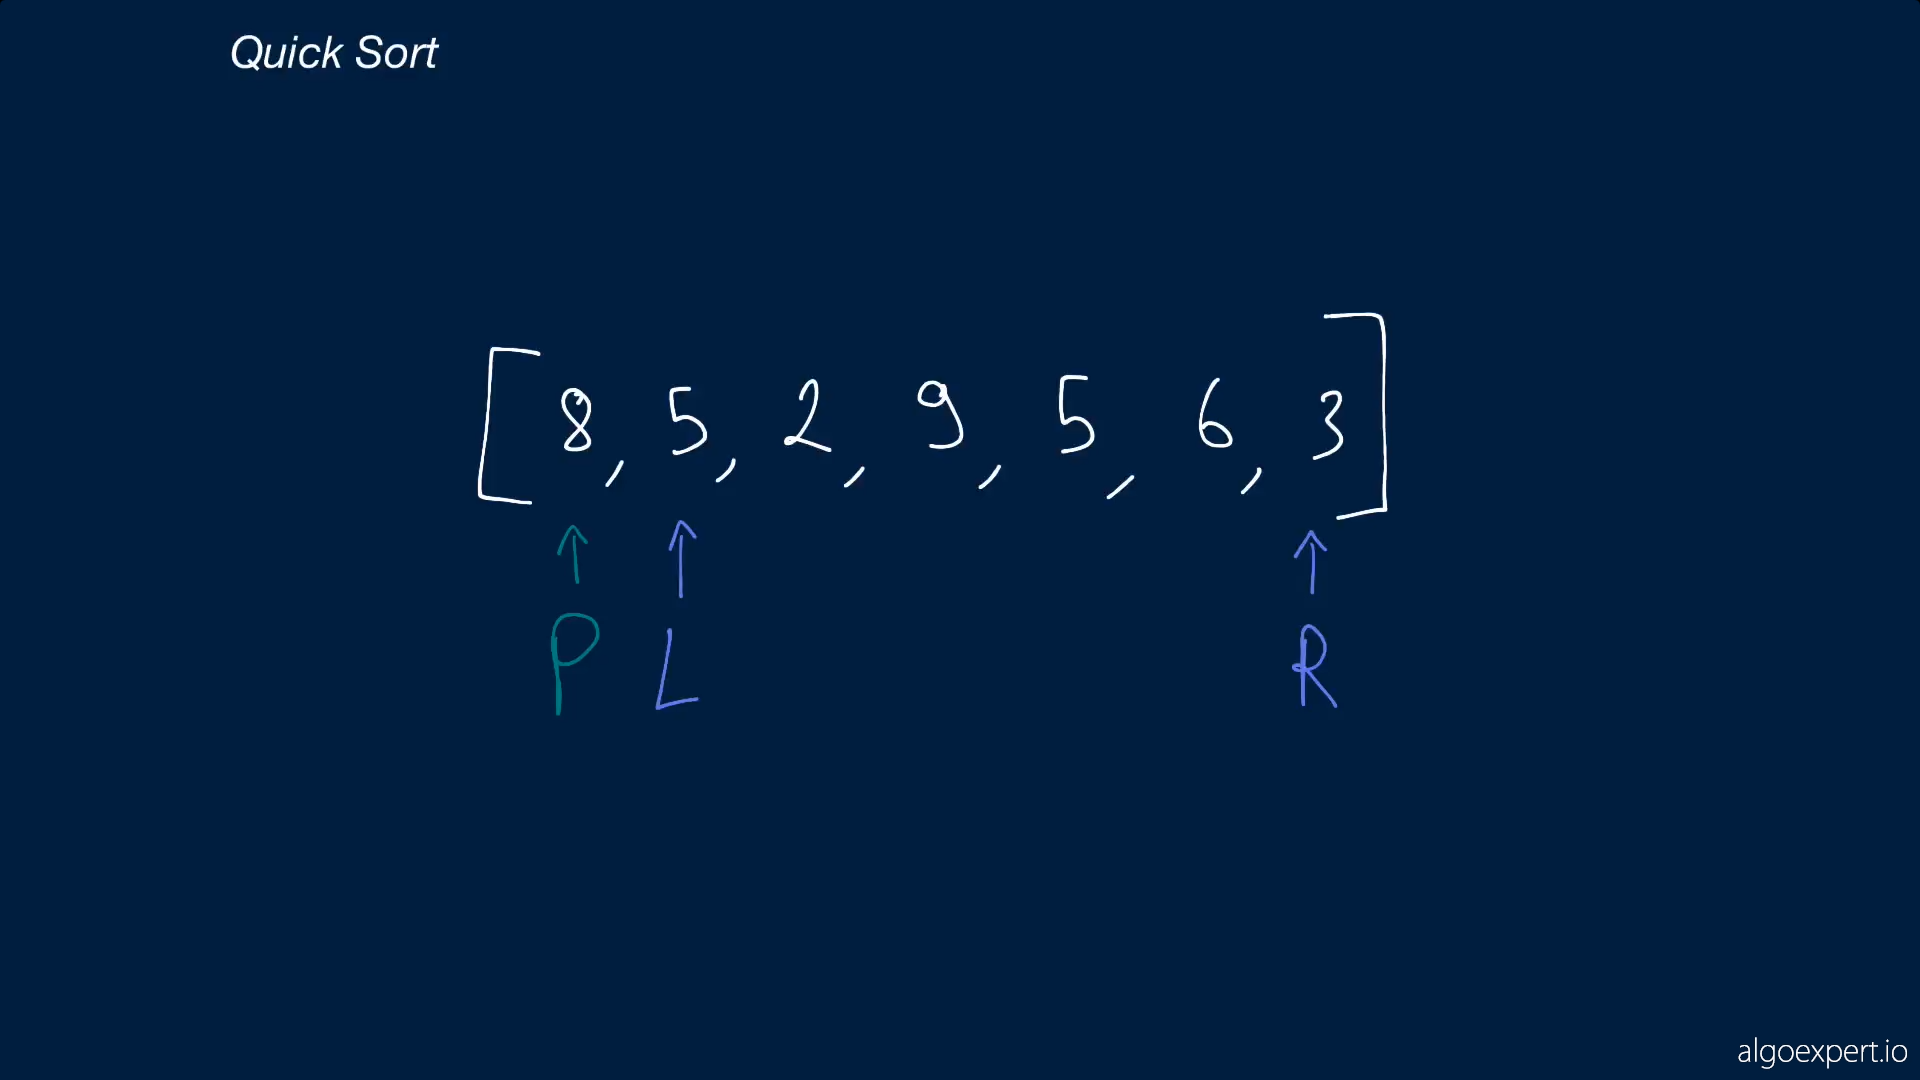 Quick Sort
[8, 5, 2, 9, 5, 6, 3]
P L R
algoexpert.io